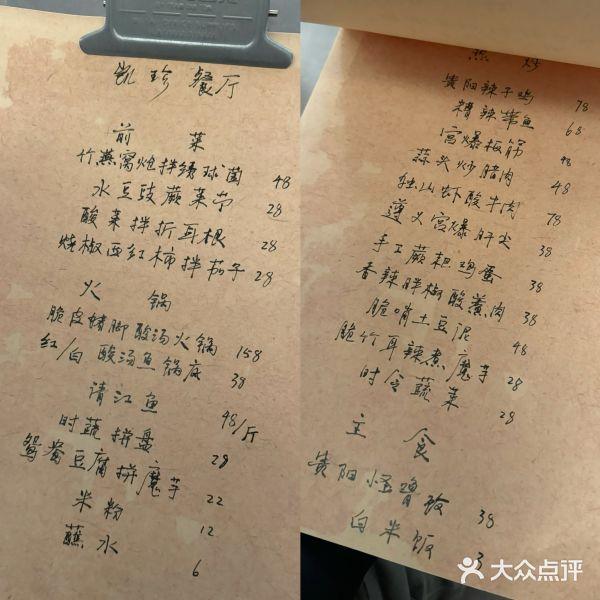 凯珍餐厅
前菜
竹燕窝炝拌绣球菌 48
水豆豉蕨菜节 28
酸菜拌折耳根 28
烧椒西红柿拌茄子 28
火锅
脆皮猪脚酸汤火锅 158
红/白酸汤鱼锅底 38
清江鱼 48/斤
时蔬拼盘 28
鸳鸯豆腐拼魔芋 22
米粉 12
蘸水 6
蒸炒
贵阳辣子鸡 78
糟辣带鱼 68
宫爆板筋 48
蒜火炒腊肉 48
独山虾酸牛肉 78
遵义宫爆肝尖 38
手工蕨粑鸡蛋 38
香辣胖椒酸煮肉 38
脆哨土豆泥 48
脆竹耳辣煮魔芋 28
时令蔬菜 28
主食
贵阳怪噜饭 38
白米饭 3
大众点评